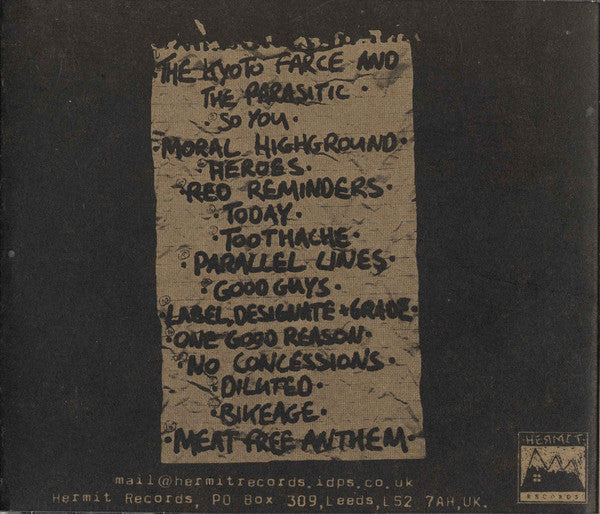 THE KYOTO FARCE AND
THE PARASITIC •
• SO YOU •
• MORAL HIGHGROUND •
• HEROES •
• RED REMINDERS •
• TODAY •
• TOOTHACHE •
• PARALLEL LINES •
• GOOD GUYS •
• LABEL, DESIGNATE + GRADE •
• ONE GOOD REASON •
• NO CONCESSIONS •
• DILUTED •
• BIKEAGE •
• MEAT FREE ANTHEM •
HERMIT
RECORDS
mail@hermitrecords.idps.co.uk
Hermit Records, PO Box 309, Leeds, LS2 7AH, UK.